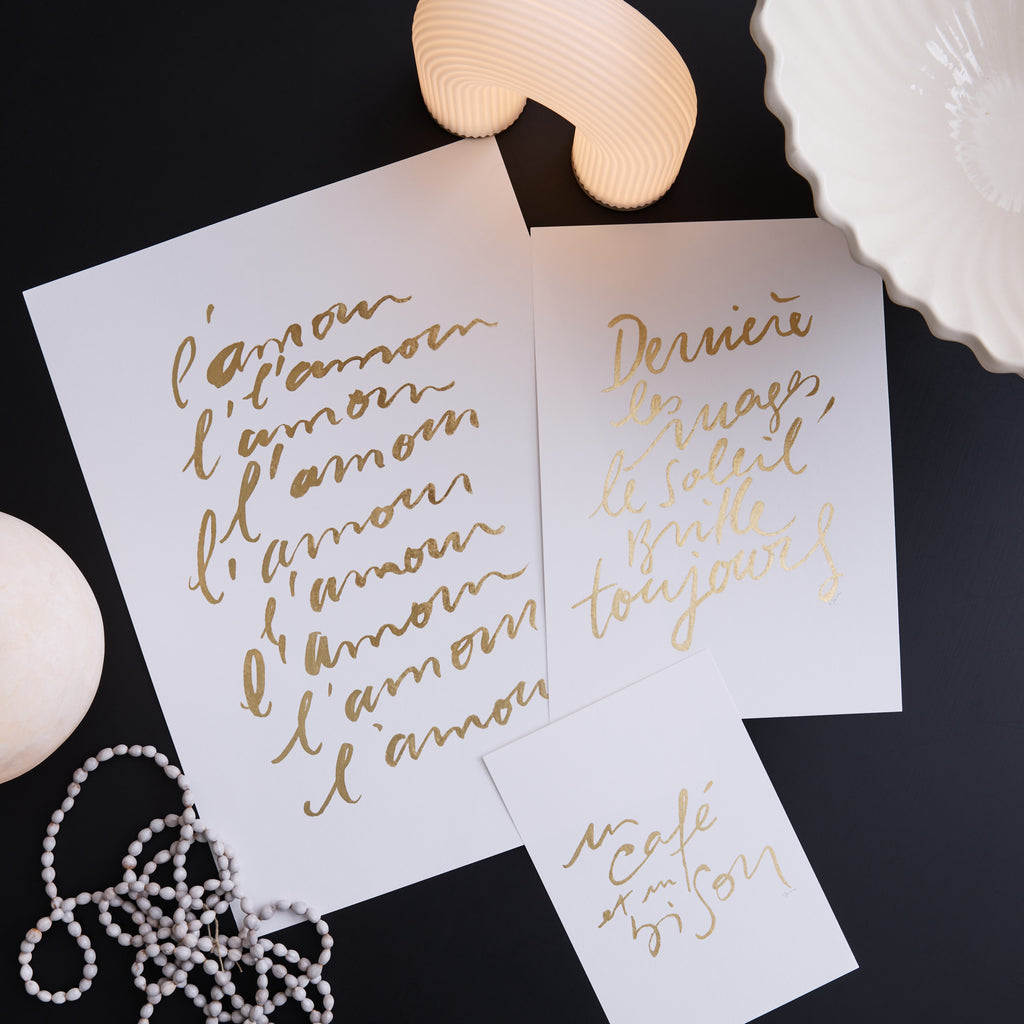 l'amour
l'amour
l'amour
l'amour
l'amour
l'amour
l'amour
l'amour
l'amour
Derrière
les
nuages,
le soleil
brille
toujours
un
café
et un
bisou